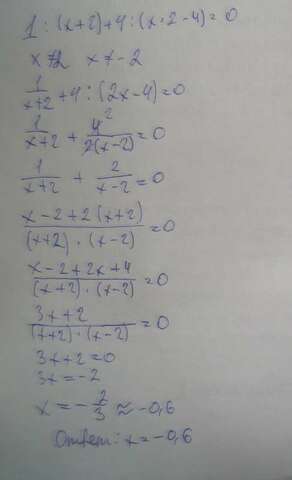 1 : (x+2)+4 : (x·2-4)=0
x≠2 x≠-2
1/(x+2) + 4 : (2x-4)=0
1/(x+2) + 4²/(2(x-2)) =0
1/(x+2) + 2/(x-2) =0
(x-2+2(x+2))/((x+2)·(x-2)) =0
(x-2+2x+4)/((x+2)·(x-2)) =0
(3x+2)/((x+2)·(x-2)) =0
3x+2=0
3x=-2
x=-2/3≈-0,6
Ответ: x=-0,6